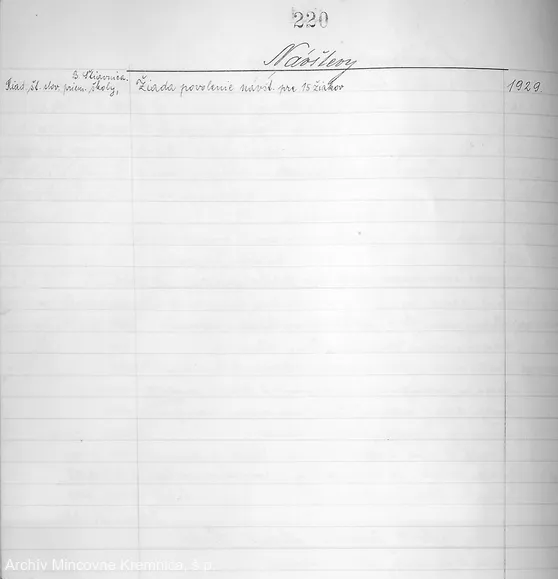 220
Návštevy
B. Štiavnica.
Riad. št. slov. priem. školy,
Žiada povolenie návšt. pre 15 žiakov
1929
Archív Mincovne Kremnica, š.p.